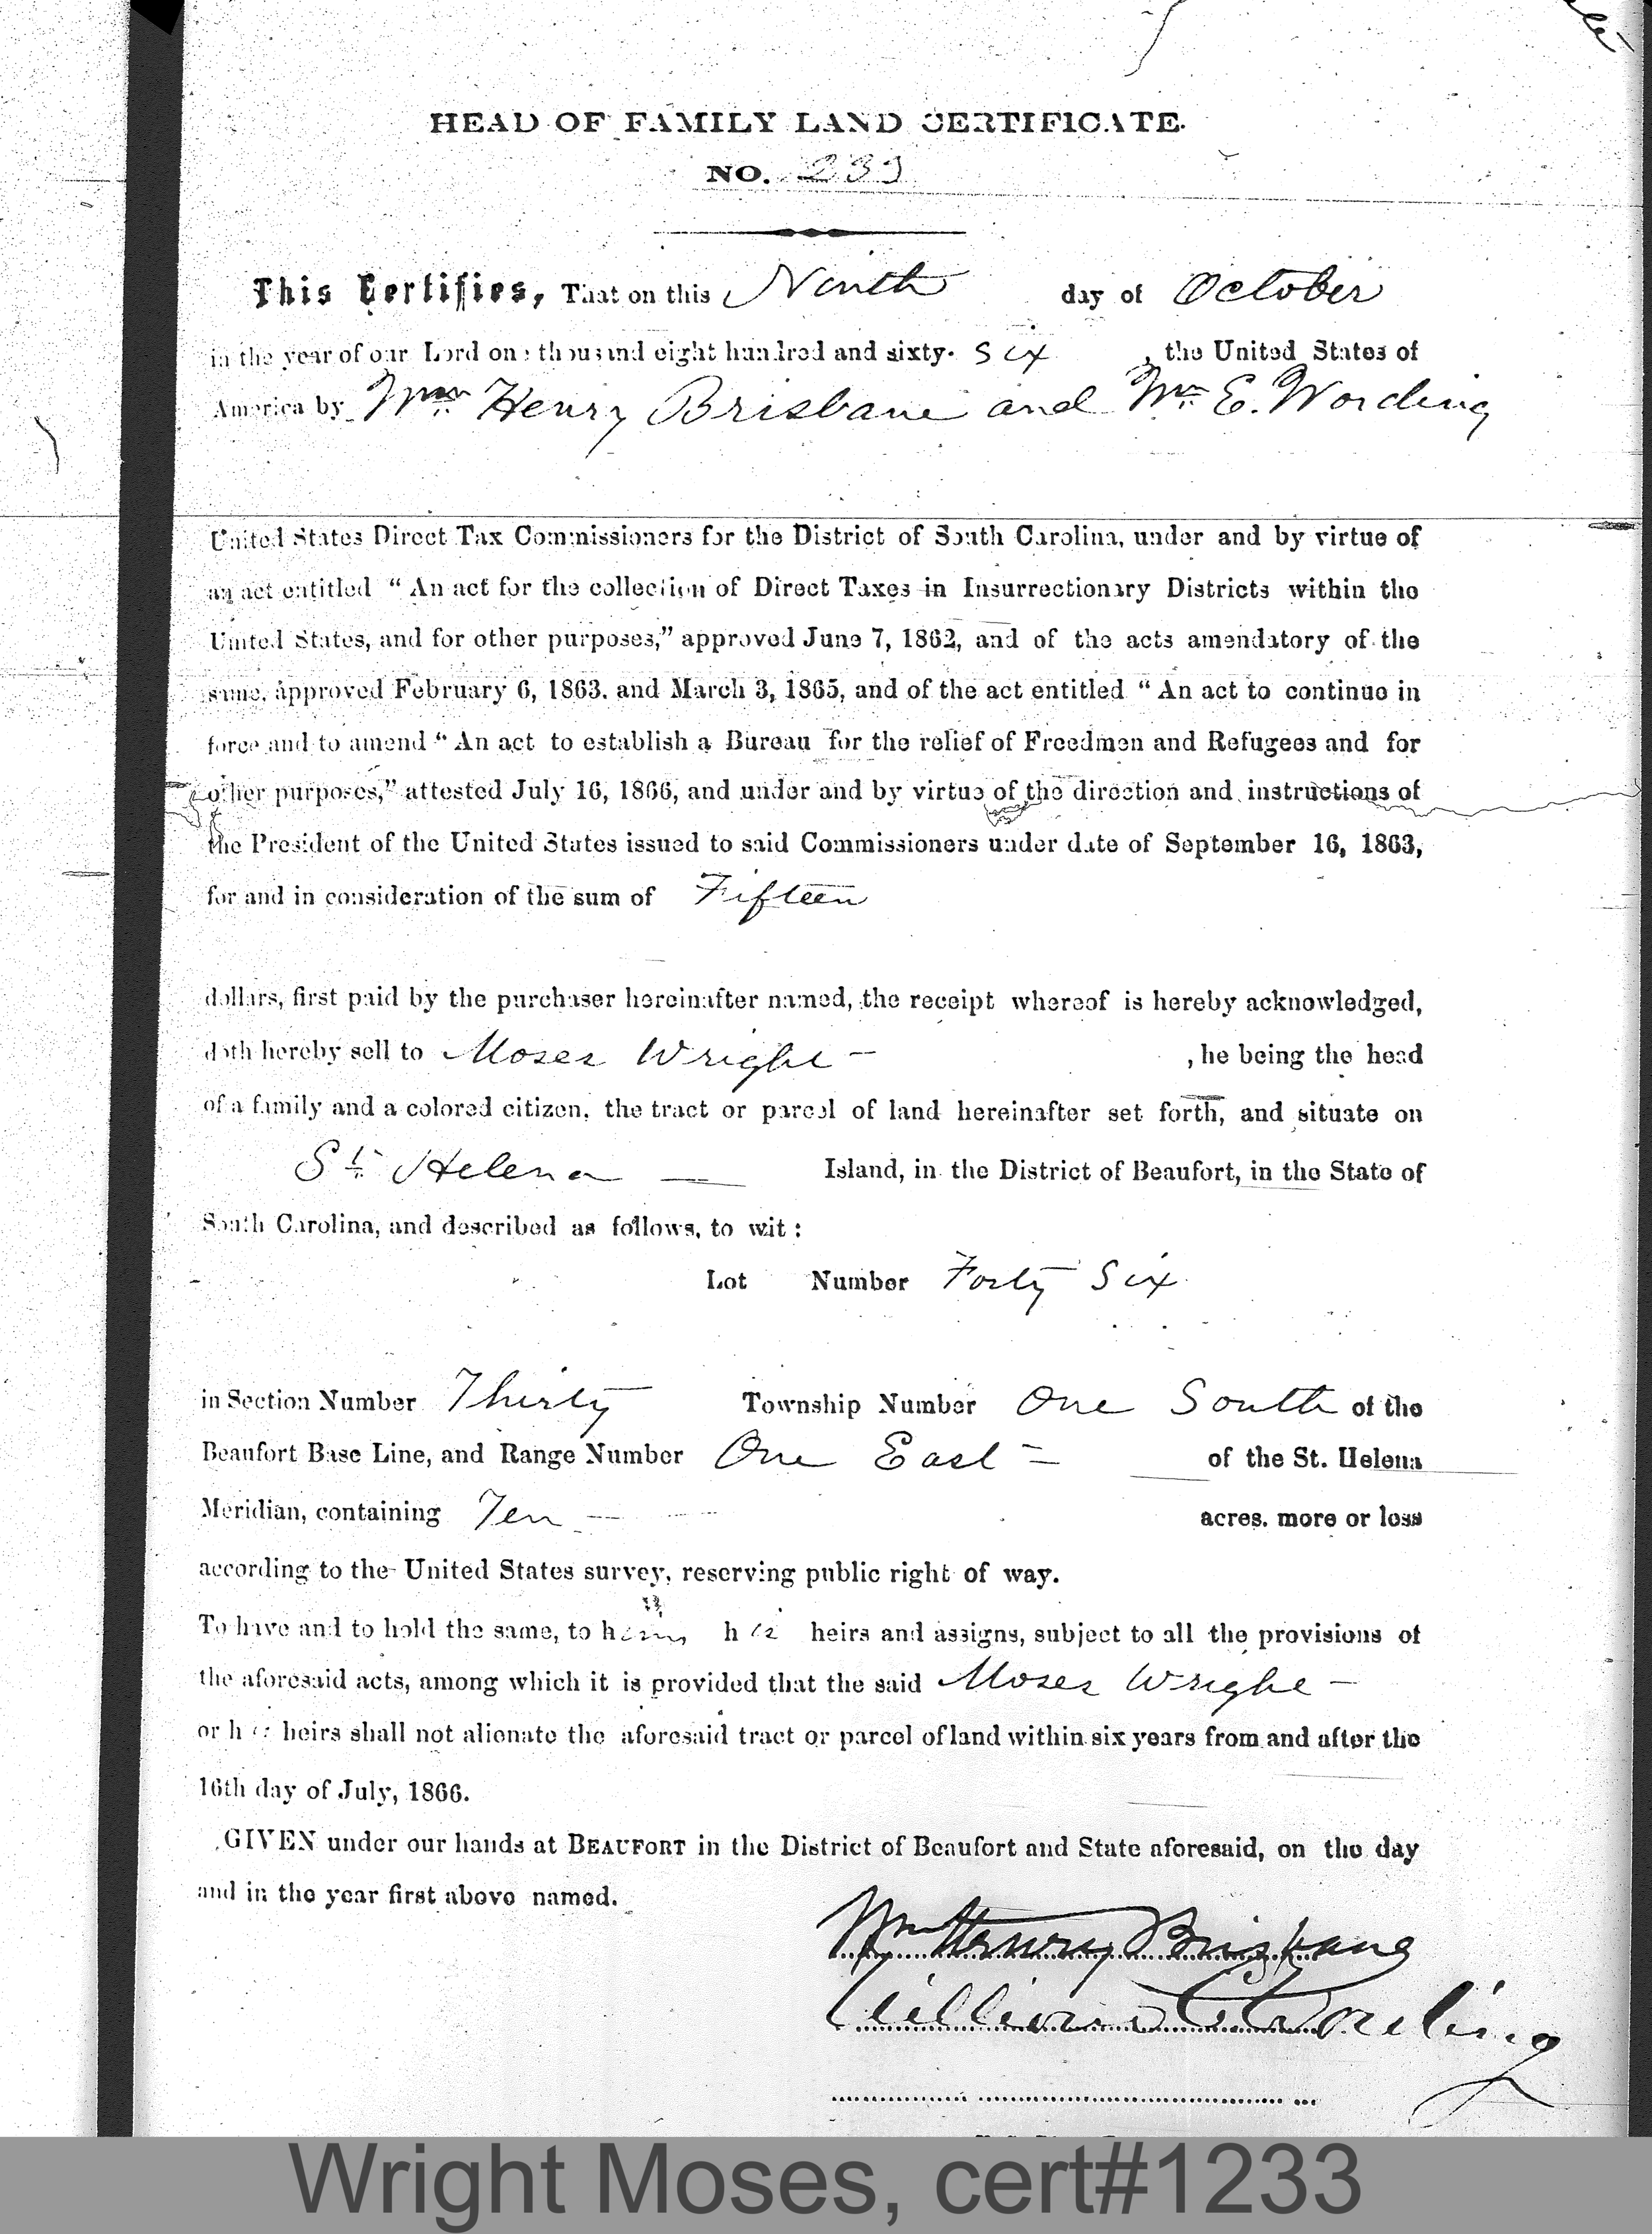 HEAD OF FAMILY LAND CERTIFICATE.
NO. 233
This Certifies, That on this Ninth day of October
in the year of our Lord one thousand eight hundred and sixty- six , the United States of
America by Wm. Henry Brisbane and Wm. E. Wording
United States Direct Tax Commissioners for the District of South Carolina, under and by virtue of
an act entitled “An act for the collection of Direct Taxes in Insurrectionary Districts within the
United States, and for other purposes,” approved June 7, 1862, and of the acts amendatory of the
same, approved February 6, 1863. and March 3, 1865, and of the act entitled “An act to continue in
force and to amend “An act to establish a Bureau for the relief of Freedmen and Refugees and for
other purposes,” attested July 16, 1866, and under and by virtue of the direction and instructions of
the President of the United States issued to said Commissioners under date of September 16, 1863,
for and in consideration of the sum of Fifteen
dollars, first paid by the purchaser hereinafter named, the receipt whereof is hereby acknowledged,
doth hereby sell to Moses Wright — , he being the head
of a family and a colored citizen, the tract or parcel of land hereinafter set forth, and situate on
St. Helena — Island, in the District of Beaufort, in the State of
South Carolina, and described as follows, to wit:
Lot Number Forty Six
in Section Number Thirty Township Number One South of the
Beaufort Base Line, and Range Number One East — of the St. Helena
Meridian, containing Ten — acres. more or less
according to the United States survey, reserving public right of way.
To have and to hold the same, to him, his heirs and assigns, subject to all the provisions of
the aforesaid acts, among which it is provided that the said Moses Wright —
or his heirs shall not alienate the aforesaid tract or parcel of land within six years from and after the
16th day of July, 1866.
GIVEN under our hands at BEAUFORT in the District of Beaufort and State aforesaid, on the day
and in the year first above named.
Wm Henry Brisbane
William E. Wording
Wright Moses, cert#1233